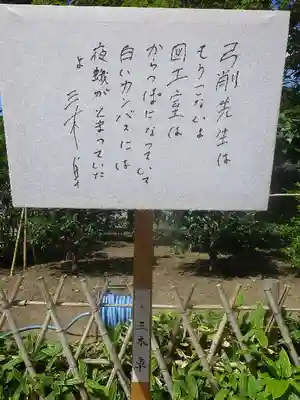 弓削先生は
もうこないよ
図工室は
からっぽになっていて
白いカンバスには
夜蛾がとまっていた
よ
三木 卓
三木 卓